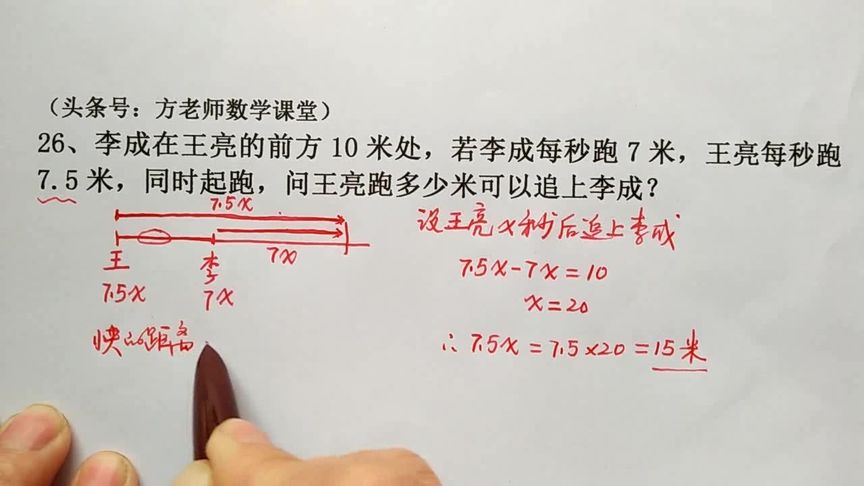 （头条号：方老师数学课堂）
26、李成在王亮的前方 10 米处，若李成每秒跑 7 米，王亮每秒跑
7.5 米，同时起跑，问王亮跑多少米可以追上李成？
7.5x
王 李 7x
7.5x 7x
快的距离
设王亮x秒后追上李成
7.5x-7x=10
x=20
∴ 7.5x=7.5×20=15米